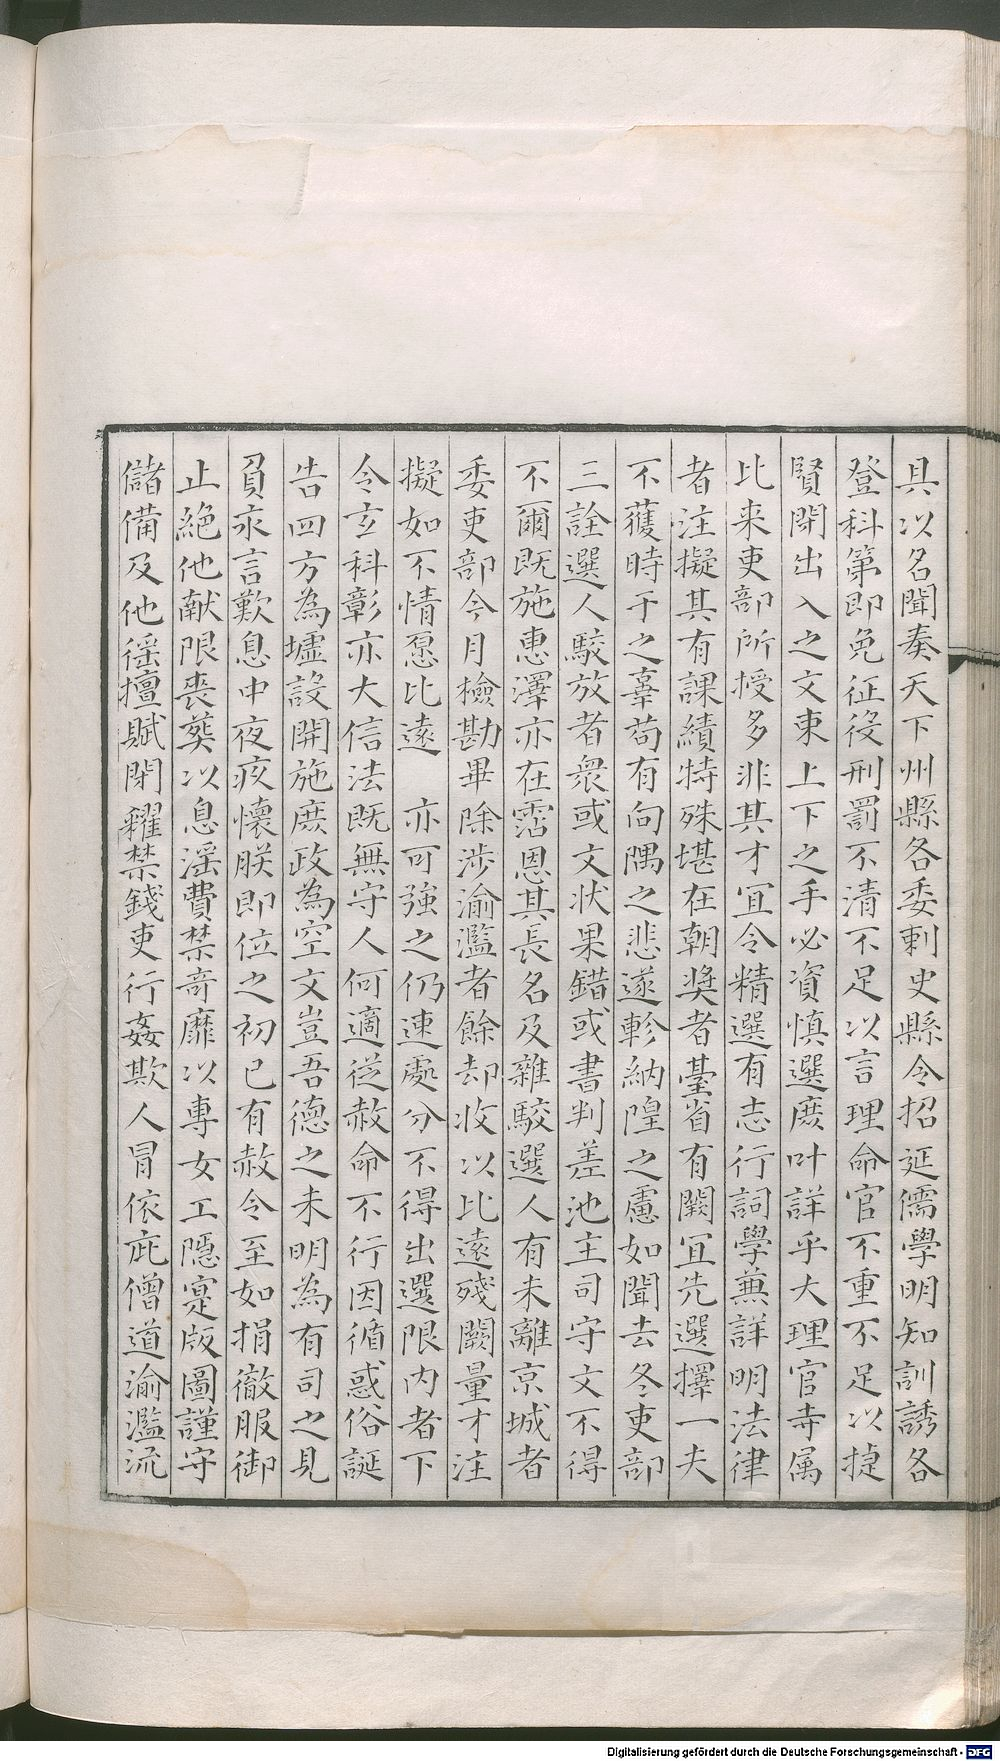 具以名聞奏天下州縣各委刺史縣令招延儒學明知訓誘各
登科第即免征役刑罰不清不足以言理命官不重不足以捷
賢開出入之文東上下之手必資慎選庶叶詳乎大理官寺属
比来吏部所授多非其才冝令精選有志行詞學兼詳明法律
者注擬其有課績特殊堪在朝奬者臺省有闕冝先選擇一夫
不獲時予之辜苟有向隅之悲遂軫納隍之慮如聞去冬吏部
三詮選人駮放者衆或文状果錯或書判差池主司守文不得
不爾既施惠澤亦在霑恩其長名及雜駮選人有未離京城者
委吏部今月檢勘畢除涉渝濫者餘却收以比遠殘闕量才注
擬如不情愿比遠　亦可強之仍速處分不得出選限内者下
令玄科彰亦大信法既無守人何適從赦命不行因循惑俗誕
告四方為墟設開施庶政為空文豈吾德之未明為有司之見
負永言歎息中夜疚懷朕即位之初已有赦令至如捐徹服御
止絶他献限喪葬以息滛費禁奇靡以專女工隱寔版圖謹守
儲備及他徭擅賦閉糴禁錢吏行姦欺人冒依庇僧道渝濫流
Digitalisierung gefördert durch die Deutsche Forschungsgemeinschaft - DFG